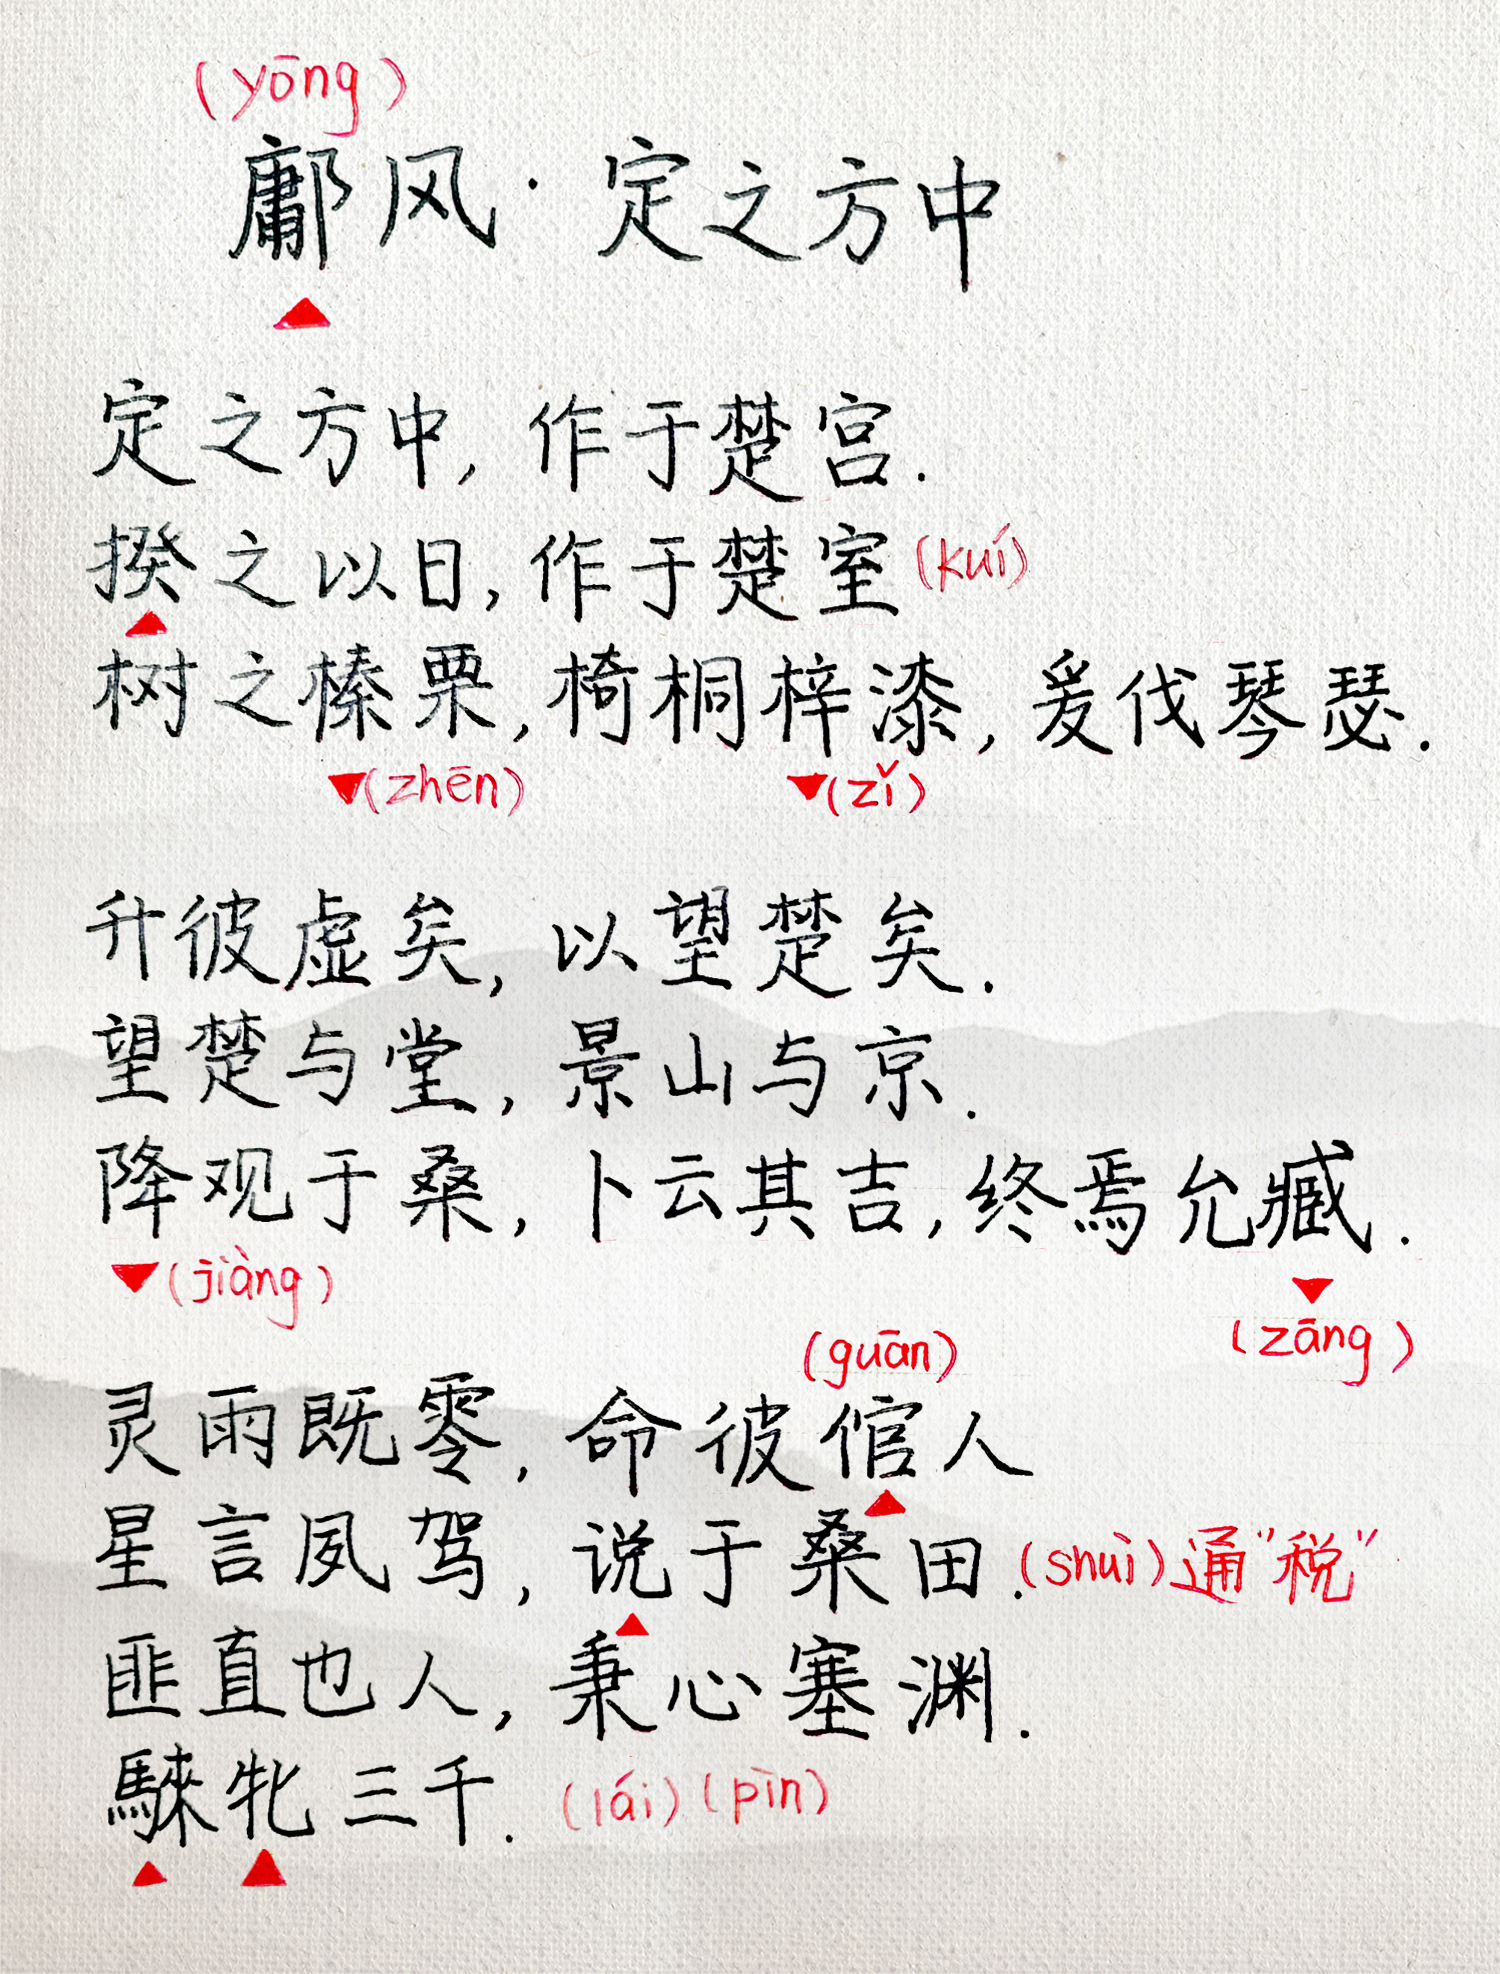 (yōng)
鄘风·定之方中
定之方中,作于楚宫.
揆之以日,作于楚室(kuí)
树之榛栗,椅桐梓漆,爰伐琴瑟.
(zhēn) (zǐ)
升彼虚矣,以望楚矣.
望楚与堂,景山与京.
降观于桑,卜云其吉,终焉允臧.
(jiàng) (zāng)
(guān)
灵雨既零,命彼倌人
星言夙驾,说于桑田.(shuì)通"税"
匪直也人,秉心塞渊.
騋牝三千.(lái)(pìn)